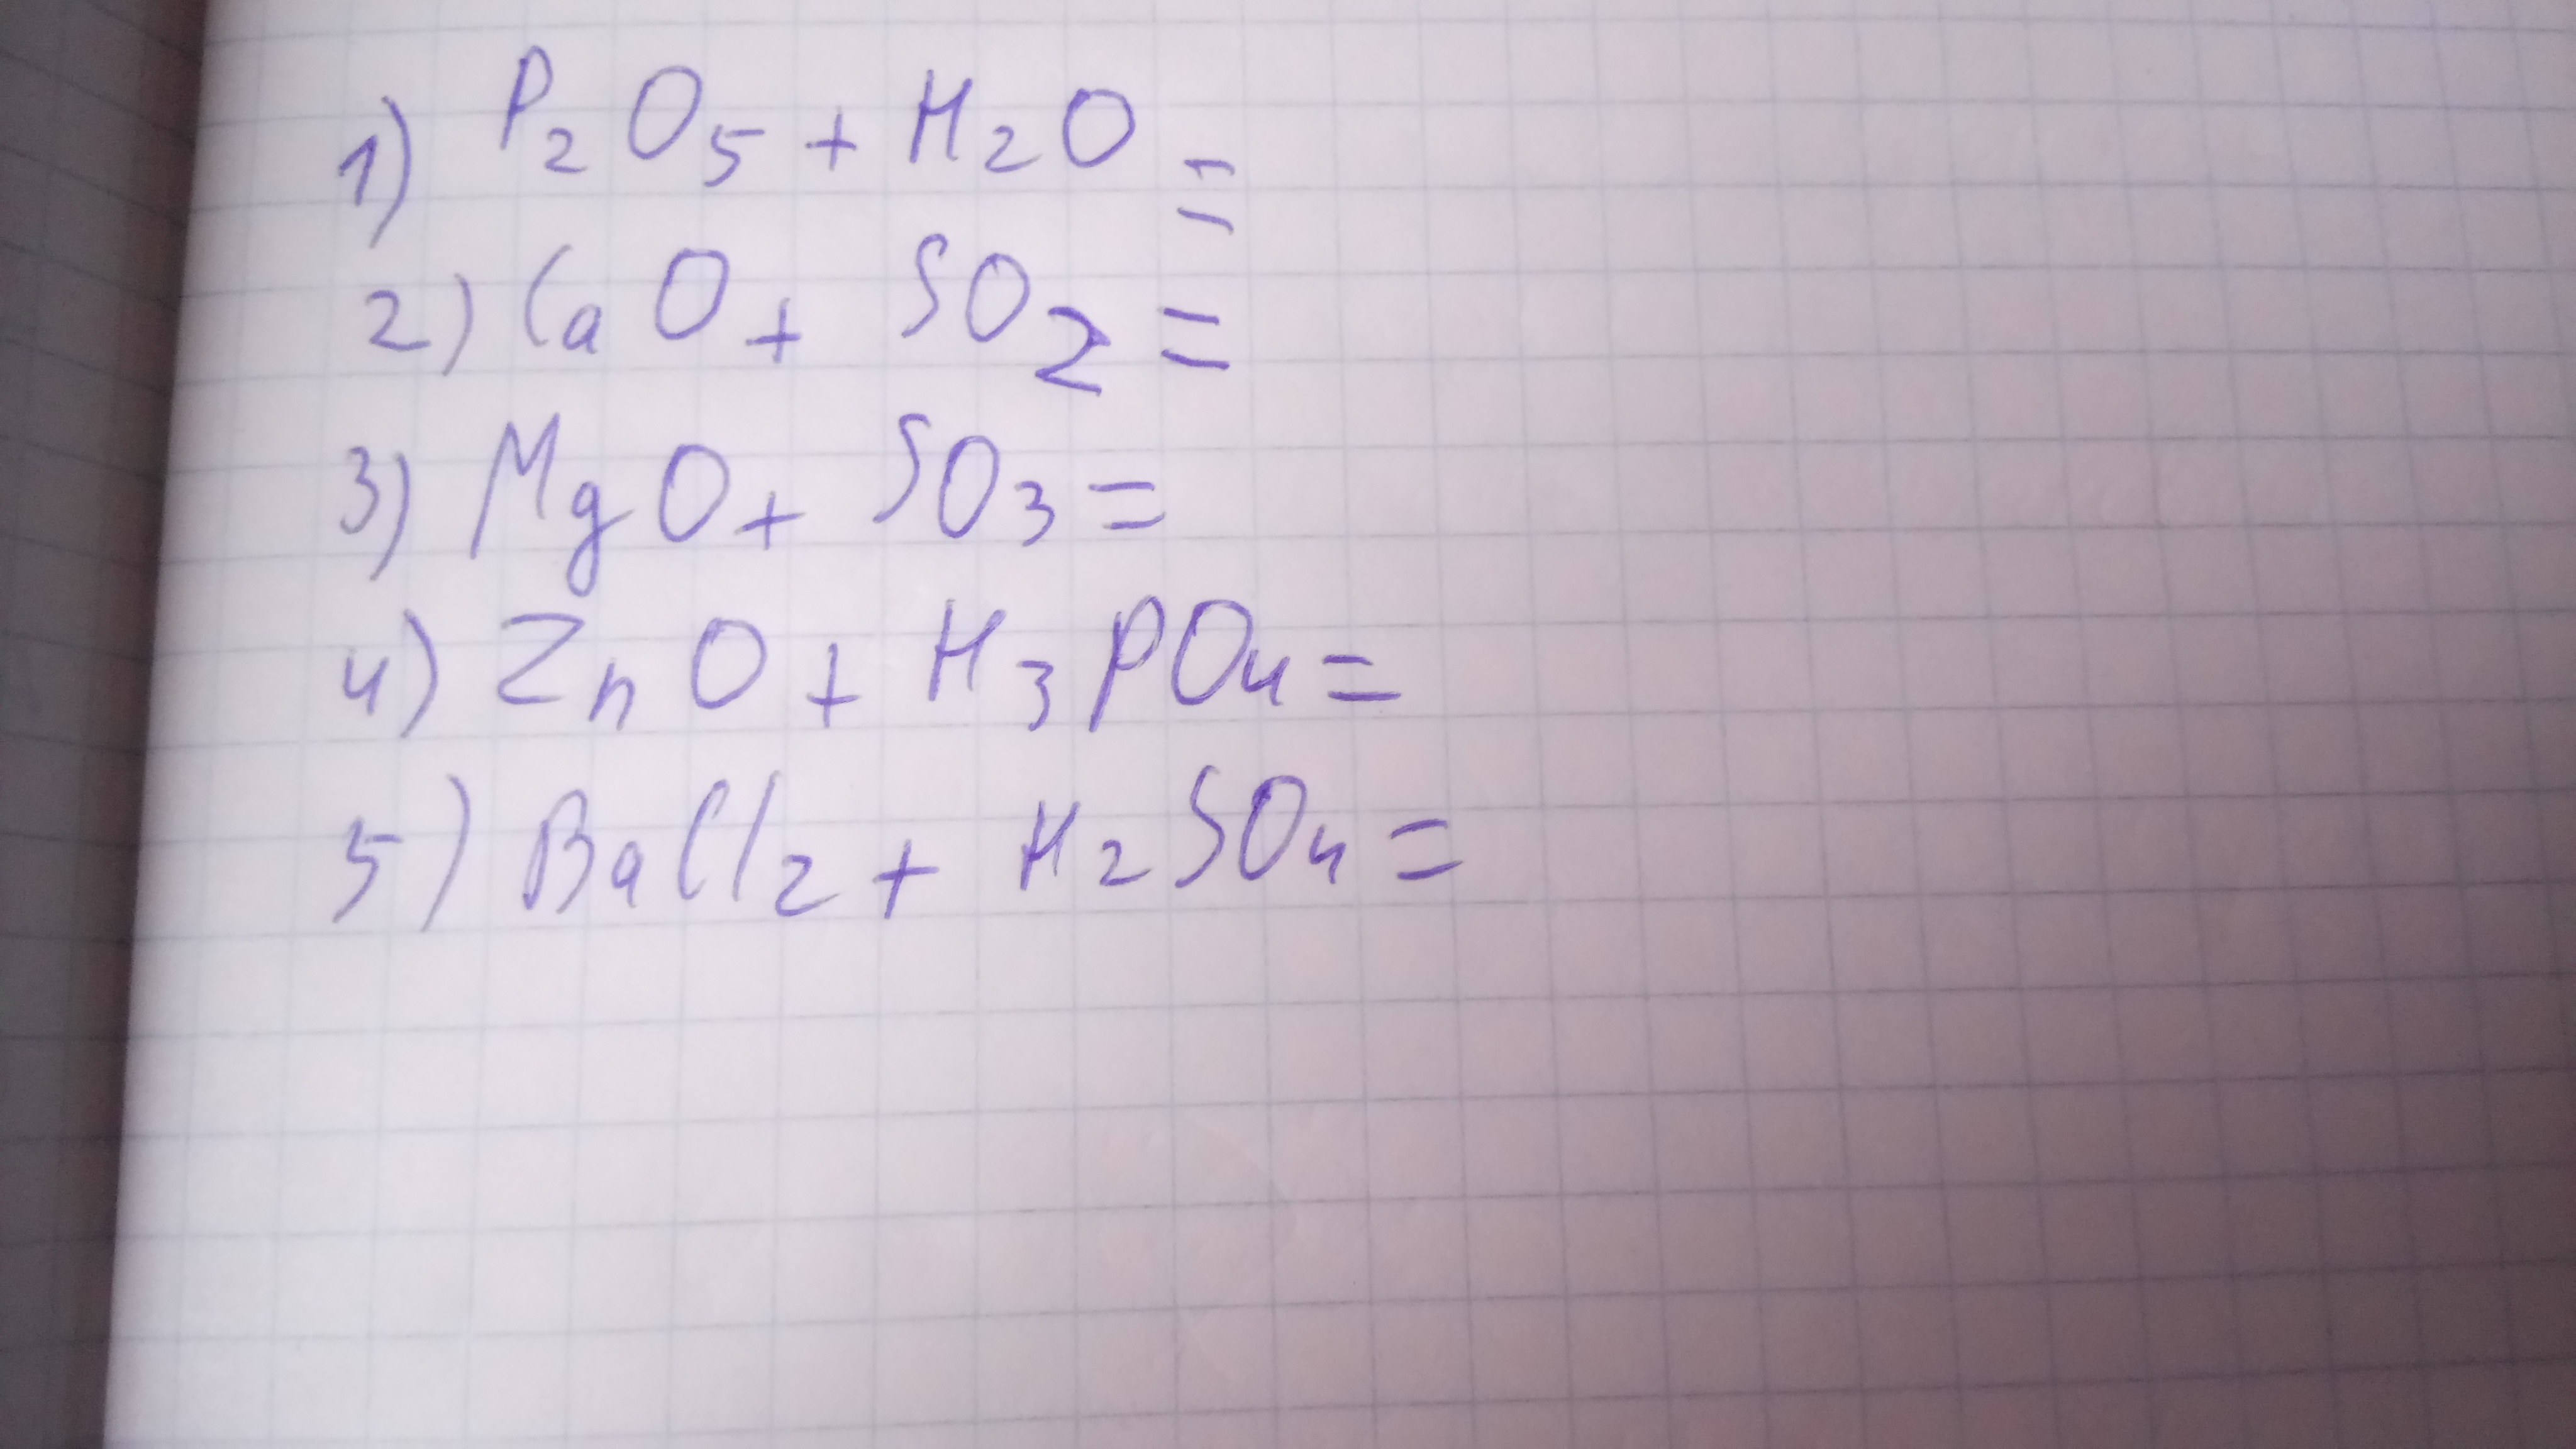 1) P₂O₅ + H₂O =
2) CaO + SO₂ =
3) MgO + SO₃ =
4) ZnO + H₃PO₄ =
5) BaCl₂ + H₂SO₄ =